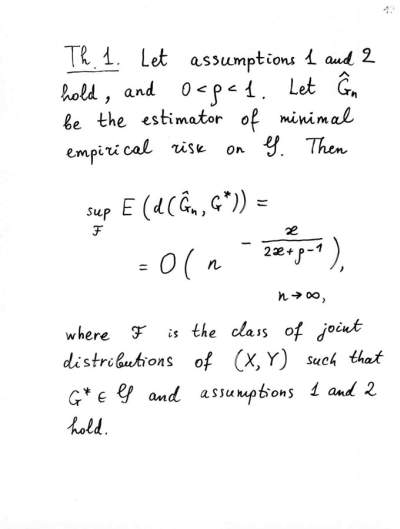 Th. 1. Let assumptions 1 and 2
hold, and 0 < ρ < 1. Let Ĝₙ
be the estimator of minimal
empirical risk on 𝒢. Then
sup_ℱ E (d(Ĝₙ, G*)) =
= O( n^{- æ/(2æ+ρ-1)} ),
n → ∞,
where ℱ is the class of joint
distributions of (X, Y) such that
G* ∈ 𝒢 and assumptions 1 and 2
hold.